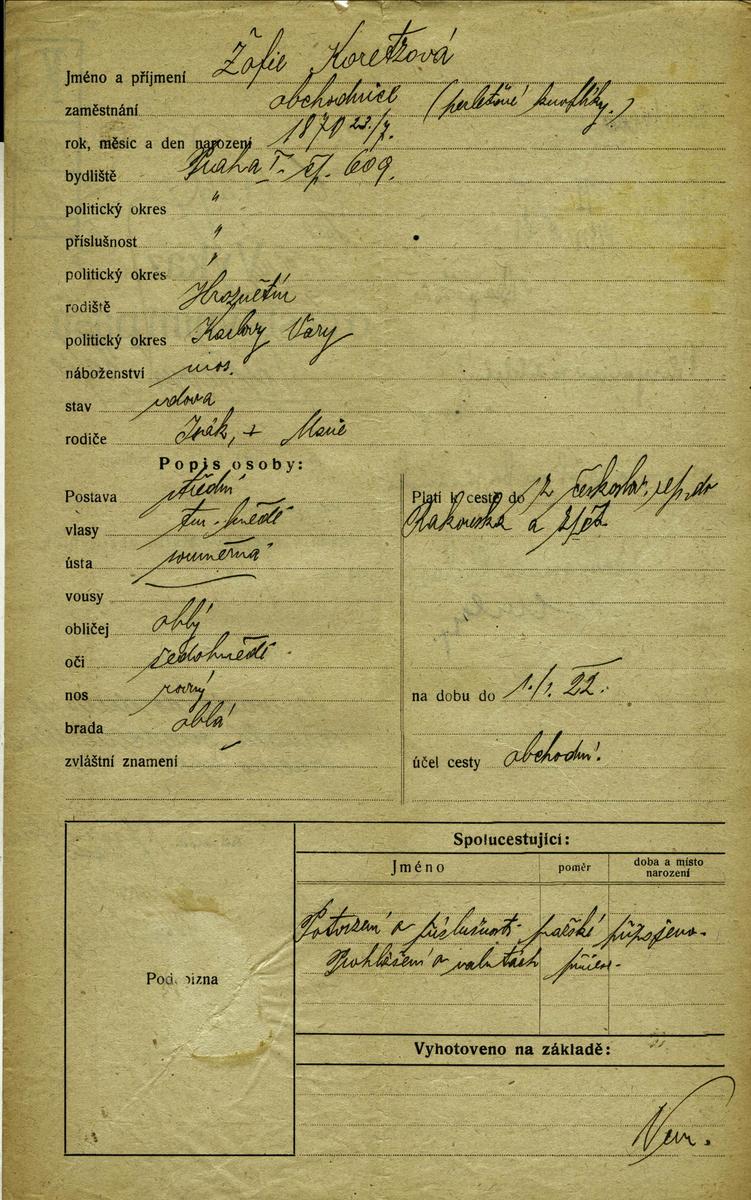 Jméno a příjmení Žofie Koretzová
zaměstnání obchodnice (perleťové knoflíky.)
rok, měsíc a den narození 1870 23./7.
bydliště Praha I. čp. 609.
politický okres "
příslušnost "
politický okres "
rodiště Hroznětín
politický okres Karlovy Vary
náboženství mos.
stav vdova
rodiče Isák, + Marie
Popis osoby:
Postava střední
vlasy tm. hnědé
ústa souměrná
vousy
obličej oblý
oči šedohnědé
nos rovný
brada oblá
zvláštní znamení
Platí k cestě do z českoslov. rep. do
Rakouska a zpět
na dobu do 1./1. 22.
účel cesty obchodní.
Spolucestující:
Jméno poměr doba a místo narození
Potvrzení o příslušnosti pražské připojeno.
Prohlášení o valutách
Podobizna
Vyhotoveno na základě: